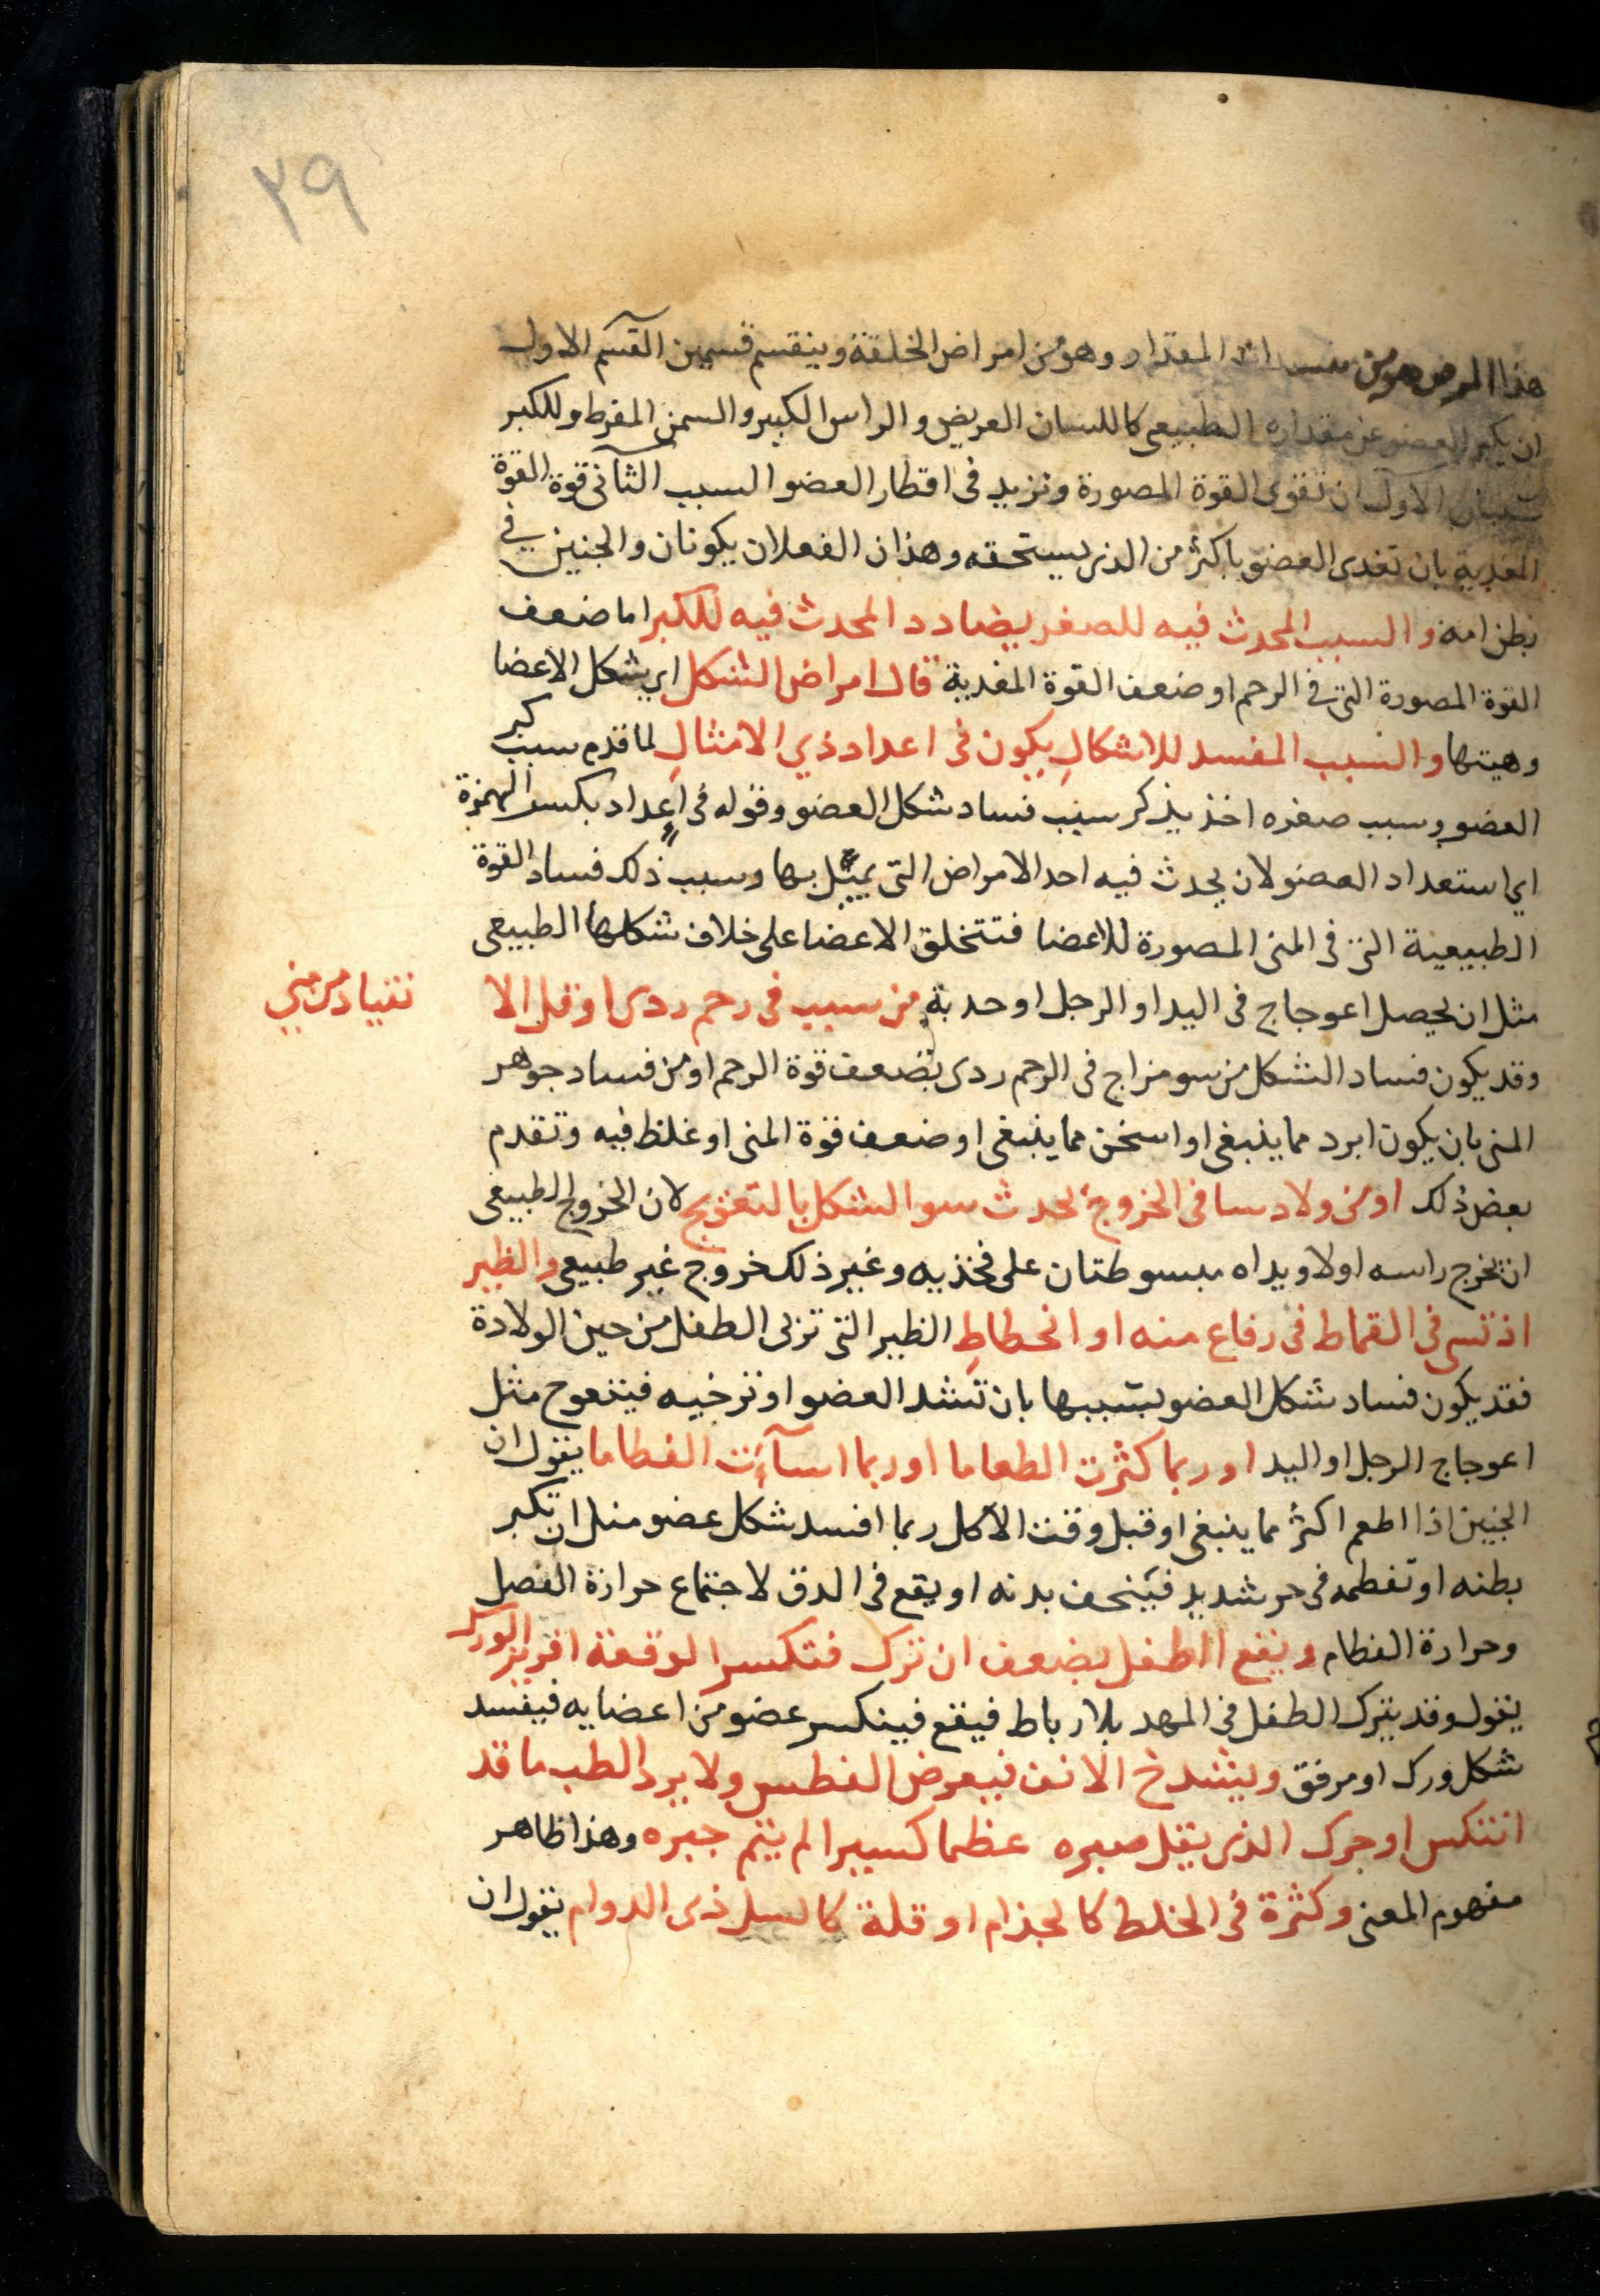 ٢٩
هذا المرض هو من المقدار وهو من امراض الخلقة وينقسم قسمين القسم الاول
ان يكبر العضو عن مقداره الطبيعى كاللسان العريض والراس الكبير والسمن المفرط وللكبر
سببان الاول ان تقوى القوة المصورة وتزيد فى اقطار العضو السبب الثانى قوة القوة
المغدية بان تغدى العضو باكثر من الذى يستحقه وهذان الفعلان يكونان والجنين في
بطن امه والسبب المحدث فيه للصغر يضادد المحدث فيه للكبر اما ضعف
القوة المصورة التى في الرحم او ضعف القوة المغدية قال امراض الشكل اى بشكل الاعضا
وهيتها والسبب المفسد للاشكالِ يكون فى اعداد ذي الامثالِ لما قدم سبب كبر
العضو وسبب صغره اخذ يذكر سبب فساد شكل العضو وقوله فى اِعداد بكسر الهمزة
اي استعداد العضو لان يحدث فيه احد الامراض التى يمثل بها وسبب ذلك فساد القوة
الطبيعية التى فى المنى المصورة للاعضا فتتخلق الاعضا على خلاف شكلها الطبيعى
مثل ان يحصل اعوجاج فى اليد او الرجل او حدبة من سبب فى رحم ردى او قل الا
نقياد من مني
وقد يكون فساد الشكل من سو مزاج فى الرحم ردى بضعف قوة الرحم او من فساد جوهر
المنى بان يكون ابرد مما ينبغى او اسخن مما ينبغى او ضعف قوة المنى او غلظ فيه وتقدم
بعض ذلك او من ولاد سا فى الخروج يحدث سو الشكل بالتعويج لان الخروج الطبيعى
ان يخرج راسه اولا ويداه مبسوطتان على فخذيه وغير ذلك خروج غير طبيعى والظير
اذ تسى فى القماط فى رفاع منه او انحطاطِ الظير التى تربى الطفل من حين الولادة
فقد يكون فساد شكل العضو بسببها بان تشد العضو او ترخيه فيتعوج مثل
اعوجاج الرجل او اليد او ربما كثرت الطعاما او ربما اسآءت الفطاما يقول ان
الجنين اذا اطعم اكثر مما ينبغى او قبل وقت الاكل ربما افسد شكل عضو مثل ان تكبر
بطنه او تفطمه فى حر شديد فينحف بدنه او يقع فى الدق لاجتماع حرارة الفصل
وحرارة الفطام ويقع الطفل بضعف ان ترك فتكسر الوقعة افريز الورك
يقول وقد يترك الطفل فى المهد بلا رباط فيقع فينكسر عضو من اعضايه فيفسد
شكل ورك او مرفق وينشدخ الانف فيعرض الفطس ولا يرد الطب ما قد
انتكس او حرك الذى يقل صبره عظما كسيرا لم يتم جبره وهذا ظاهر
مفهوم المعنى وكثرة فى الخلط كالجذام او قلة كالسل ذى الدوام يقول ان